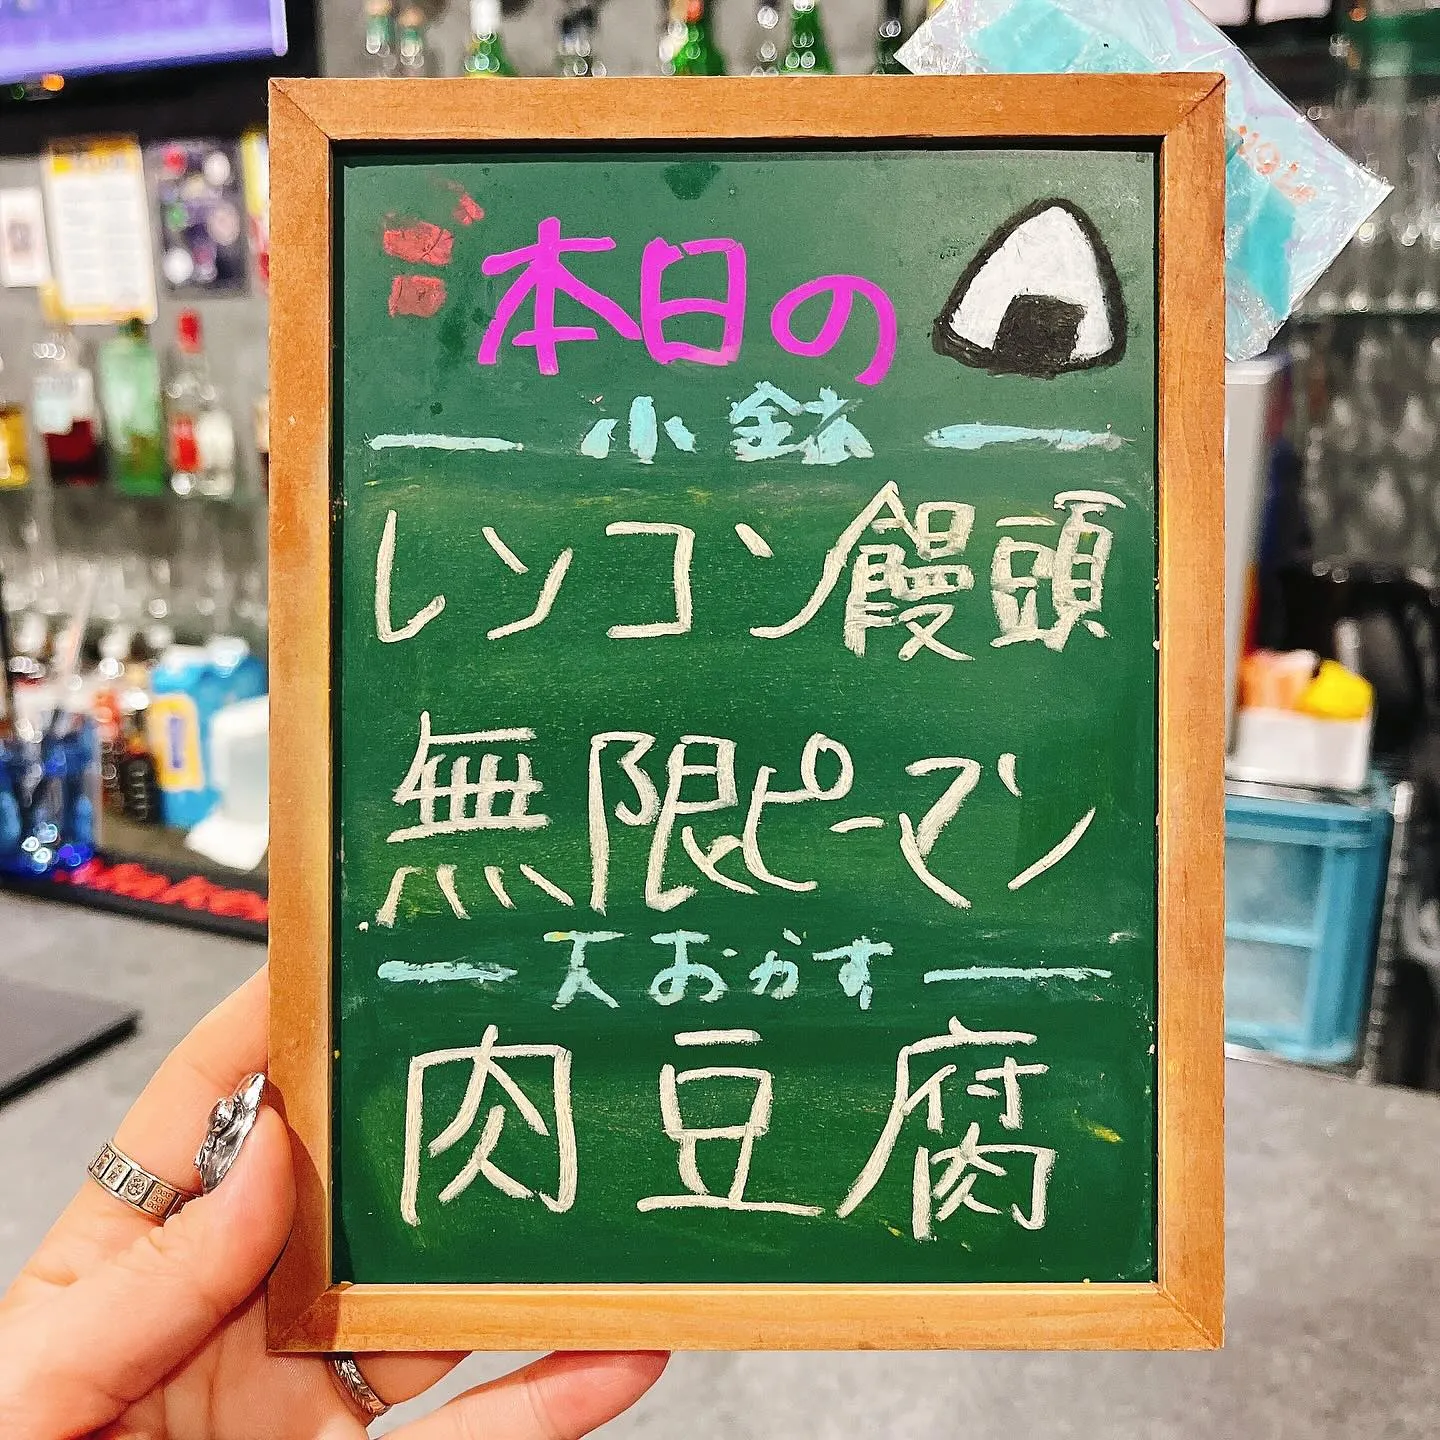 本日の
小鉢
レンコン饅頭
無限ピーマン
大おかず
肉豆腐